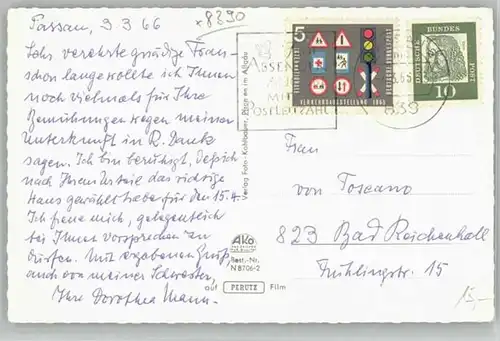 Passau, 9 3 66
*8390
Sehr verehrte gnädige Frau –
schon lange wollte ich Ihnen
noch vielmals für Ihre
Bemühungen wegen meiner
Unterkunft in R. Dank
sagen. Ich bin beruhigt, daß ich
nach Ihrem Urteil das richtige
Haus gewählt habe für den 15. 4.
Ich freue mich, gelegentlich
bei Ihnen vorsprechen zu
dürfen. Mit ergebenem Gruß
auch von meiner Schwester,
Ihre Dorothea Mann.
Verlag Foto-Kohlbauer, Pfronten im Allgäu
Ako
Best.-Nr.
N 8706-2
auf PERUTZ Film
5
DEUTSCHE BUNDESPOST
VERKEHRSAUSSTELLUNG 1965
DEUTSCHE BUNDESPOST
10
ABSEN
MIT
POSTLEITZAHL
839
Frau
von Toscano
823 Bad Reichenhall
Frühlingstr. 15
15,-